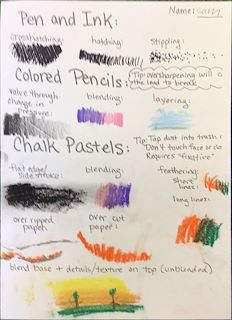 Name: Sam
Pen and Ink:
crosshatching: hatching: stippling:
Colored Pencils: Tip: oversharpening will
the lead to break
value through
change in
pressure:
blending:
layering:
Chalk Pastels: Tip: Tap dust into trash
Don't touch face or
Requires "fixative"
flat edge/
side stroke:
blending:
feathering:
short
lines:
long lines:
over ripped
paper:
over cut
paper:
blend base + details/texture on top (unblended)